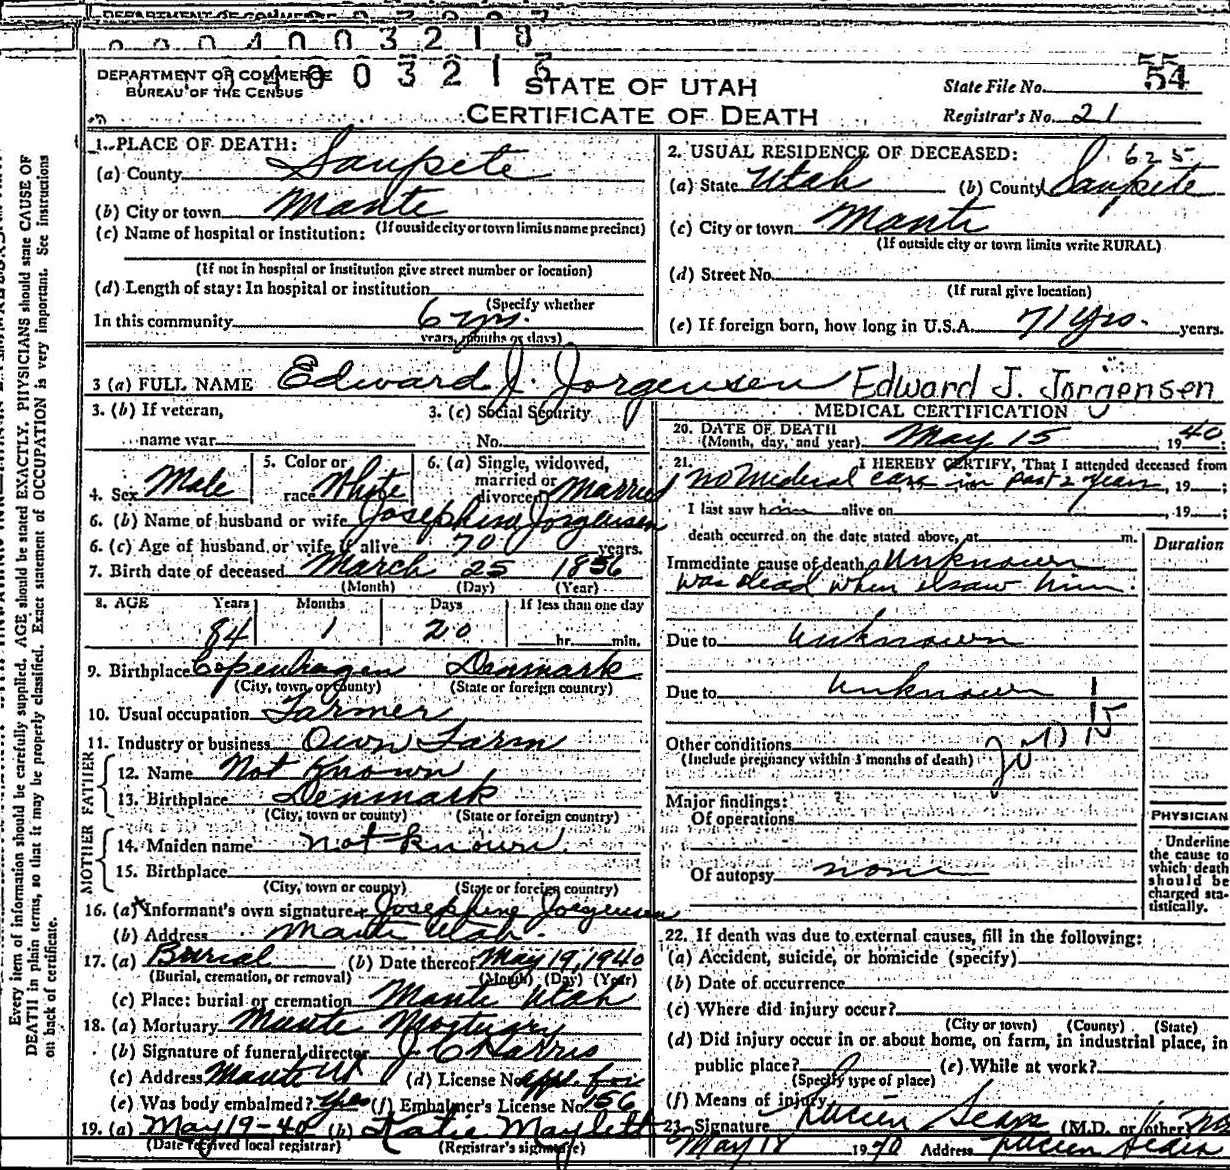 DEPARTMENT OF COMMERCE
0 0 0 4 0 0 3 2 1 8
4 0 0 3 2 1 6
DEPARTMENT OF COMMERCE
BUREAU OF THE CENSUS
STATE OF UTAH
CERTIFICATE OF DEATH
State File No. 54
Registrar's No. 21
1. PLACE OF DEATH:
(a) County Sanpete
(b) City or town Mante
(If outside city or town limits name precinct)
(c) Name of hospital or institution:
(If not in hospital or institution give street number or location)
(d) Length of stay: In hospital or institution
(Specify whether
In this community 67 yrs.
years, months or days)
2. USUAL RESIDENCE OF DECEASED: 625
(a) State Utah (b) County Sanpete
(c) City or town Manti
(If outside city or town limits write RURAL)
(d) Street No.
(If rural give location)
(e) If foreign born, how long in U.S.A. 71 yrs. years.
3 (a) FULL NAME Edward J. Jorgensen Edward J. Jorgensen
3. (b) If veteran,
name war
3. (c) Social Security
No.
4. Sex Male
5. Color or
race White
6. (a) Single, widowed,
married or
divorced Married
6. (b) Name of husband or wife Josephine Jorgensen
6. (c) Age of husband or wife if alive 70 years.
7. Birth date of deceased March 25 1856
(Month) (Day) (Year)
8. AGE Years Months Days If less than one day
84 1 20 hr. min.
9. Birthplace Copenhagen Denmark
(City, town, or county) (State or foreign country)
10. Usual occupation Farmer
11. Industry or business Own Farm
FATHER
12. Name Not Known
13. Birthplace Denmark
(City, town or county) (State or foreign country)
MOTHER
14. Maiden name not known
15. Birthplace
(City, town or county) (State or foreign country)
16. (a) Informant's own signature Josephine Jorgensen
(b) Address Manti Utah.
17. (a) Burial (b) Date thereof May 19, 1940
(Burial, cremation, or removal) (Month) (Day) (Year)
(c) Place: burial or cremation Mante Utah
18. (a) Mortuary Mante Mortuary
(b) Signature of funeral director J C Harris
(c) Address Mante Ut (d) License No. appl. for
(e) Was body embalmed? yes (f) Embalmer's License No. 156
19. (a) May 19-40 (b) Katie Maylett
(Date received local registrar) (Registrar's signature)
MEDICAL CERTIFICATION
20. DATE OF DEATH
(Month, day, and year) May 15 1940
21. I HEREBY CERTIFY, That I attended deceased from
no Medical care in past 2 years, 19 ;
I last saw him alive on , 19 ;
death occurred on the date stated above, at m.
Duration
Immediate cause of death Unknown
was dead when I saw him.
Due to unknown
Due to unknown
Other conditions
(Include pregnancy within 3 months of death)
Major findings:
Of operations
Of autopsy none
PHYSICIAN
Underline
the cause to
which death
should be
charged sta-
tistically.
22. If death was due to external causes, fill in the following:
(a) Accident, suicide, or homicide (specify)
(b) Date of occurrence
(c) Where did injury occur?
(City or town) (County) (State)
(d) Did injury occur in or about home, on farm, in industrial place, in
public place? (e) While at work?
(Specify type of place)
(f) Means of injury
23. Signature Lucien Sears (M.D. or other)
May 18 1940 Address Lucien Sears
Every item of information should be carefully supplied. AGE should be stated EXACTLY. PHYSICIANS should state CAUSE OF
DEATH in plain terms, so that it may be properly classified. Exact statement of OCCUPATION is very important. See instructions
on back of certificate.